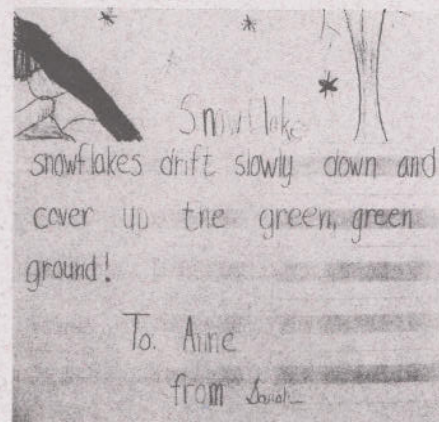 Snowflake
snowflakes drift slowly down and
cover up the green, green
ground!
To. Anne
from Sarah